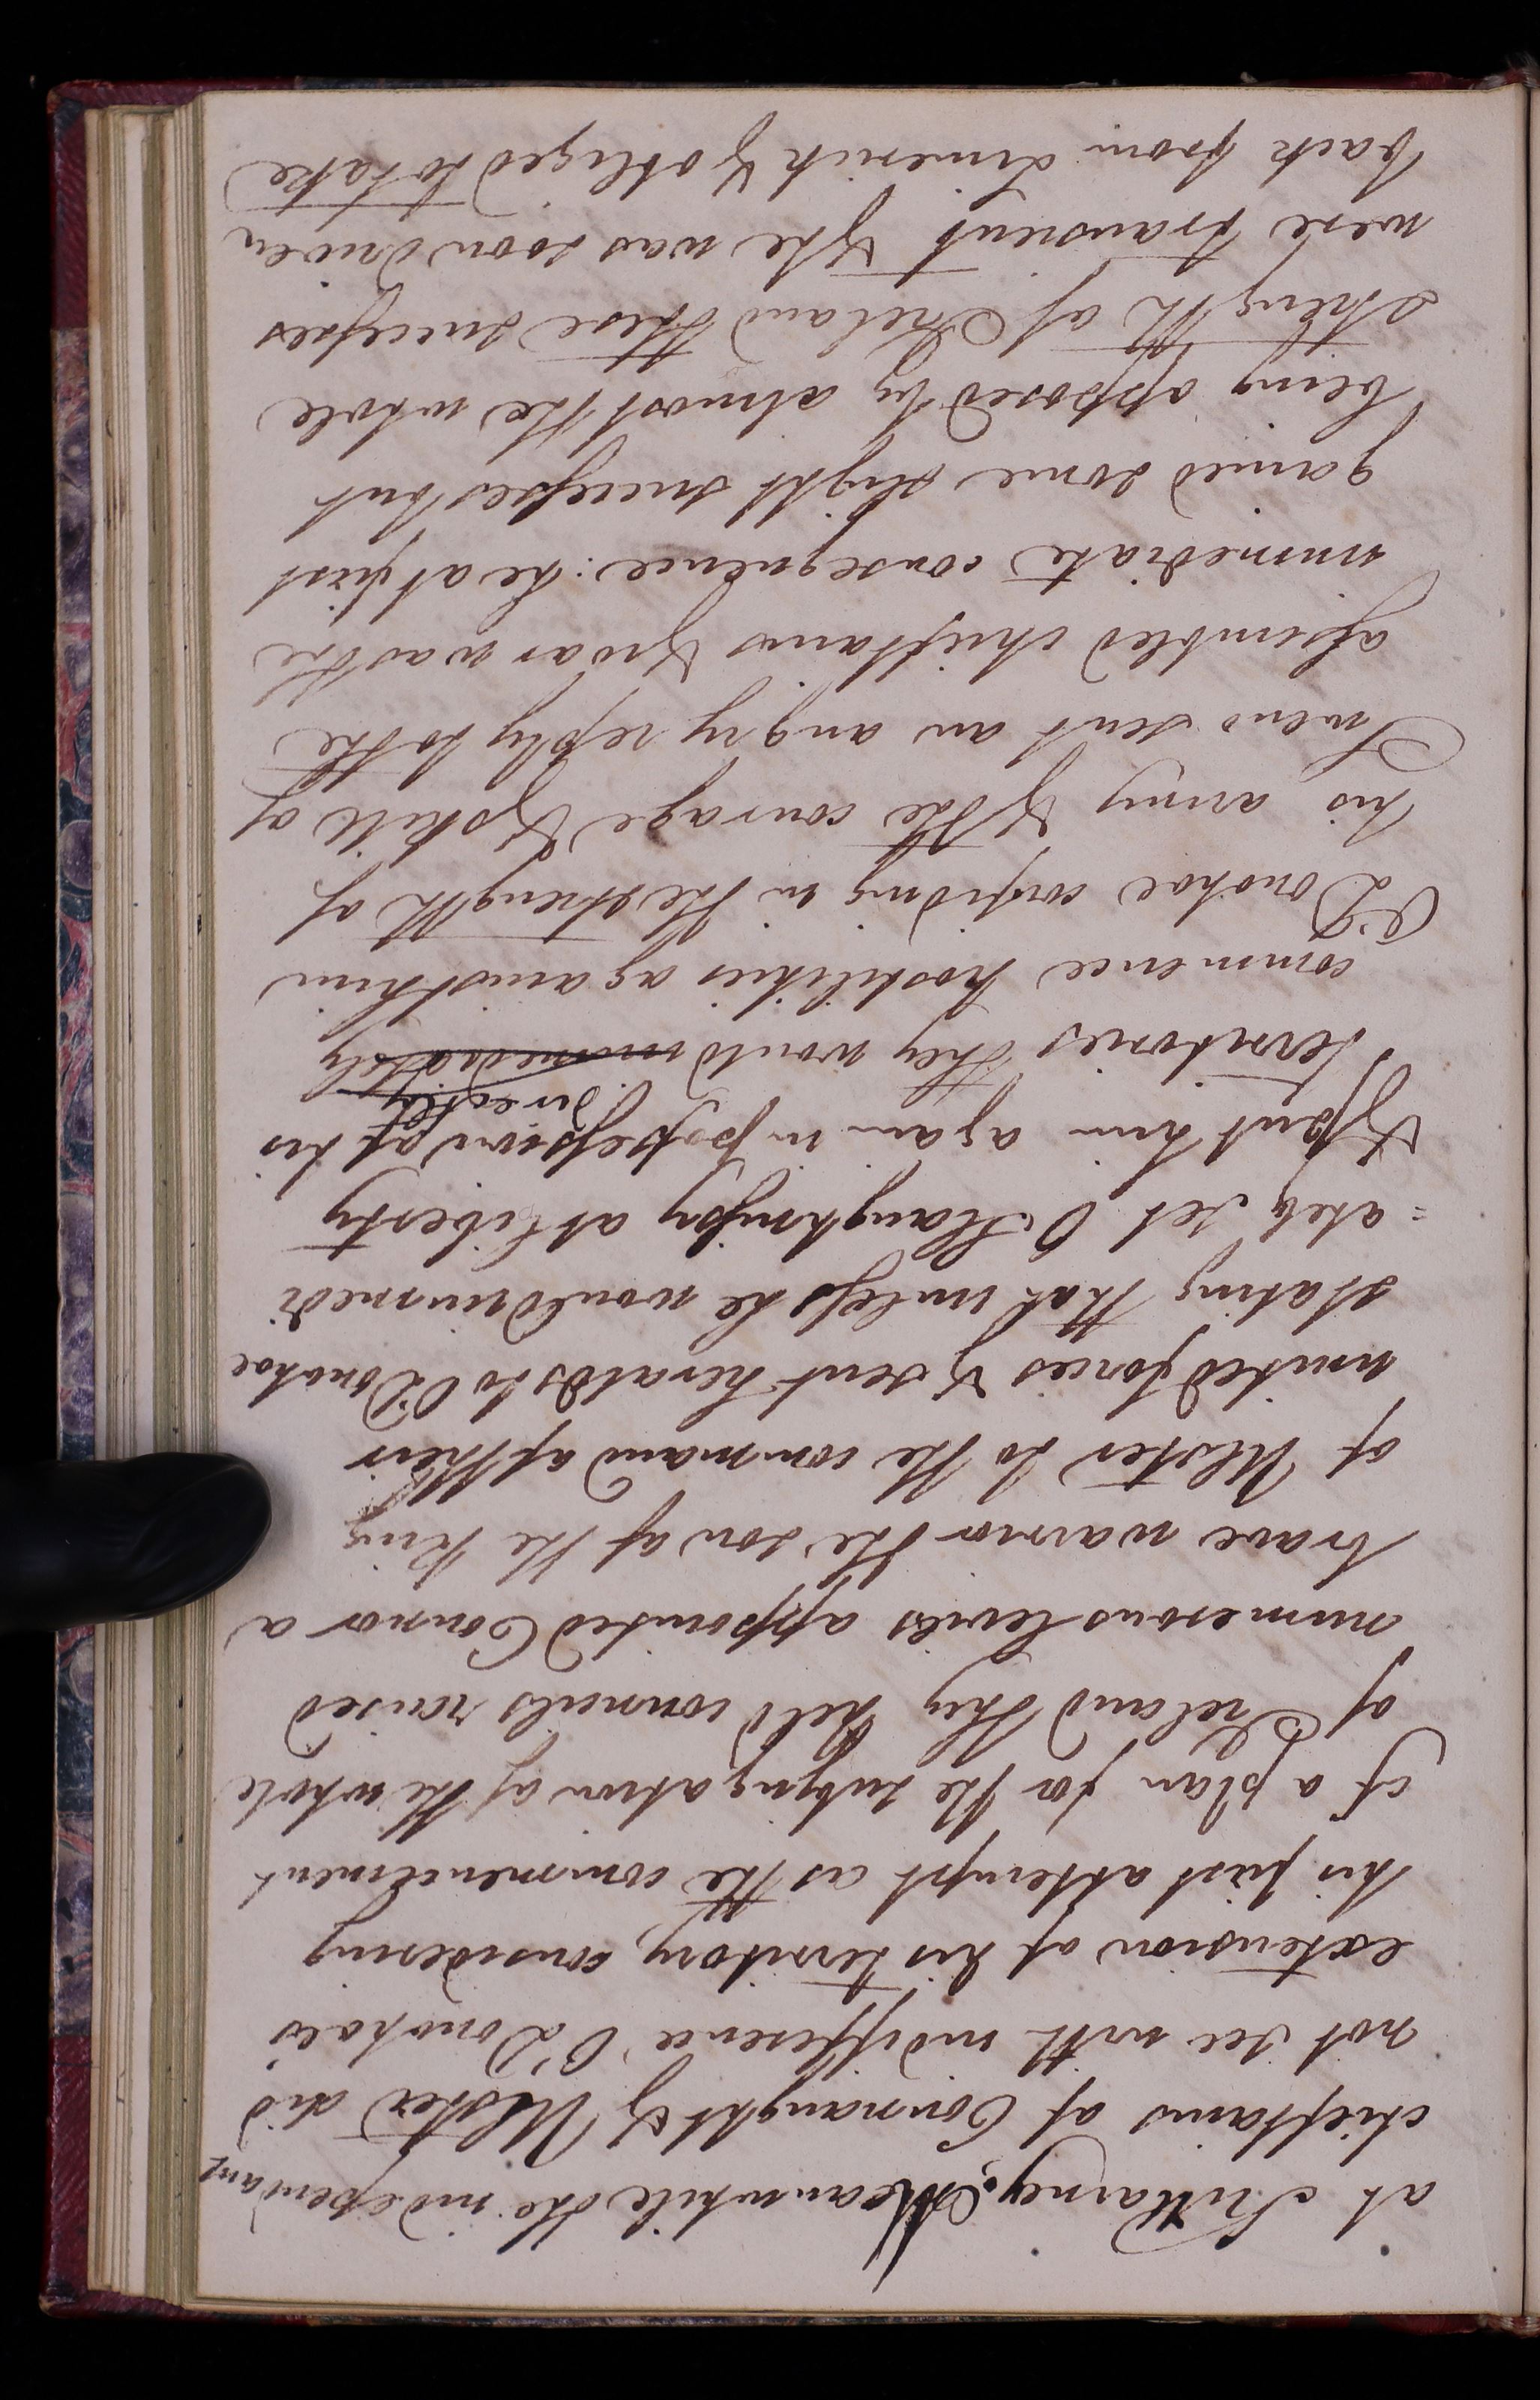 at Killarney. Meanwhile the independant
chieftains of Connaught & Ulster did
not see with indifference O'Donohoe's
extension of his territory, considering
his first attempt as the commencement
of a plan for the subjugation of the whole
of Ireland they held councils raised
numerous levies appointed Connor a
brave warrior the son of the King
of Ulster to the command of their
united forces & sent heralds to O'Donohoe
stating that unless he would immedi
=ately set O'Slaughnessy at liberty
& put him again in possession of his
directly
territories they would immediately
commence hostilities against him
O'Donohoe confiding in the strength of
his army & the courage & skill of
Imeno sent an angry reply to the
assembled chieftains & war was the
immediate consequence: he at first
gained some slight successes but
being opposed by almost the whole
strength of Ireland these successes
were transient & he was soon driven
back from Limerick & obliged to take